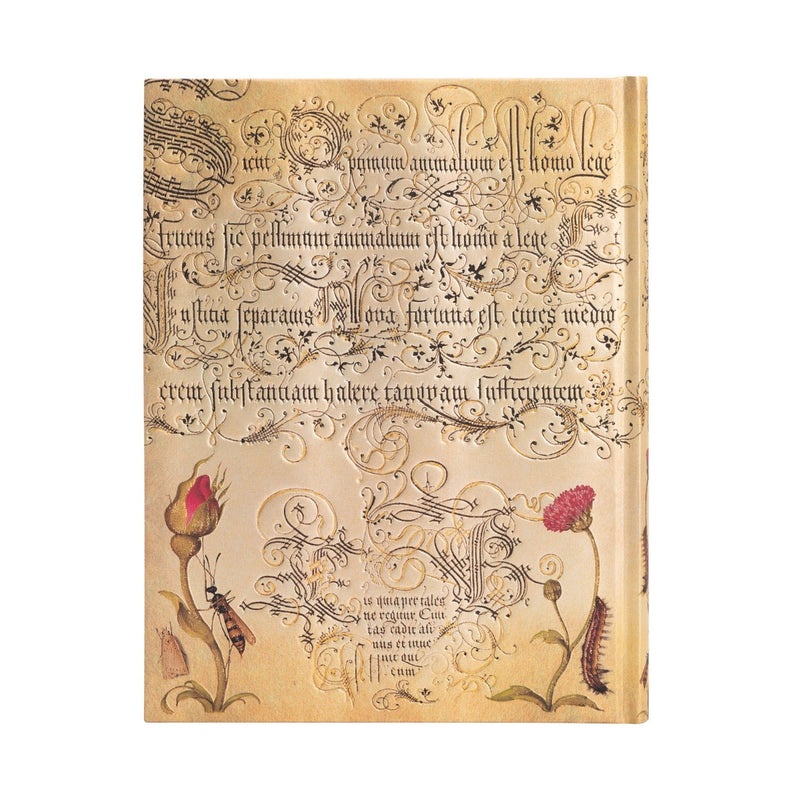 Sicut Optimum animalium est homo lege
fruens sic pessimum animalium est homo a lege
Iustitia separatus Nova fortuna est, cives medio
crem substantiam habere tanqvam sufficientem
is quia per tales
ne regitur, Civi
tas cadit asi
nus et inue
nit qui
eum